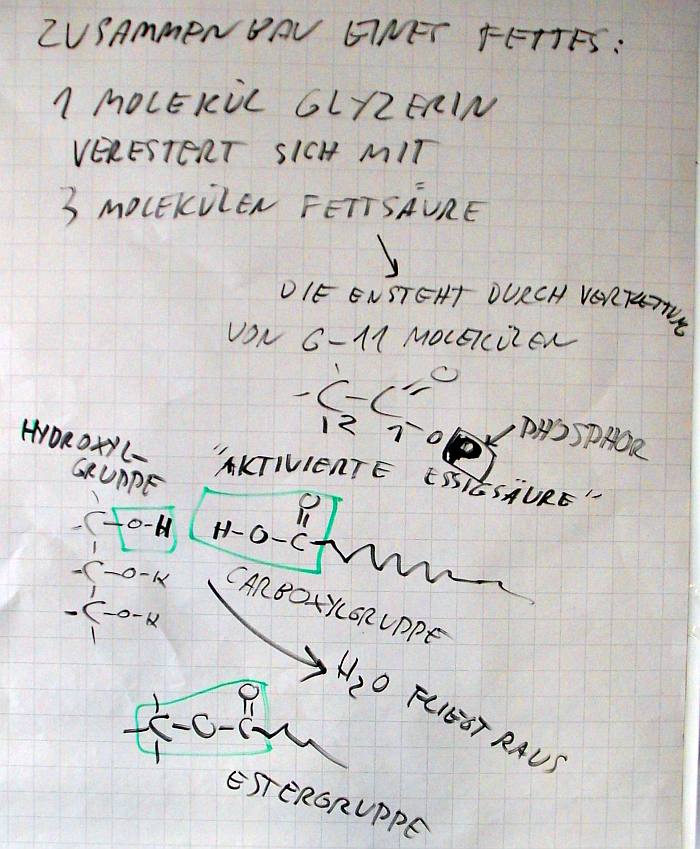 ZUSAMMENBAU EINES FETTES:
1 MOLEKÜL GLYZERIN
VERESTERT SICH MIT
3 MOLEKÜLEN FETTSÄURE
DIE ENSTEHT DURCH VERKETTUNG
VON 6-11 MOLEKÜLEN
-C-C=O
12 1 O P PHOSPHOR
"AKTIVIERTE ESSIGSÄURE"
HYDROXYL-
GRUPPE
-C-O-H H-O-C=O
-C-O-H
-C-O-H
CARBOXYLGRUPPE
H2O FLIEGT RAUS
-C-O-C=O
ESTERGRUPPE